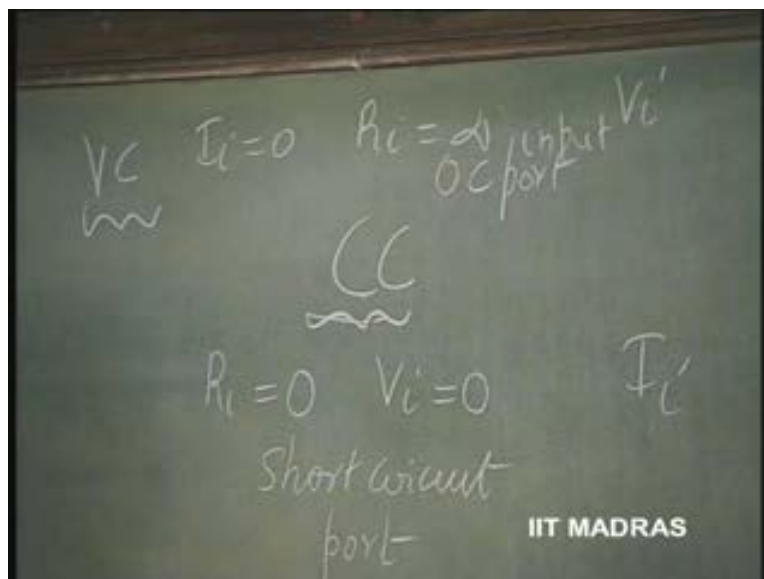 VC Ii=0 Ri=∞ input Vi
OC port
CC
Ri=0 Vi=0 Ii
Short circuit
port
IIT MADRAS